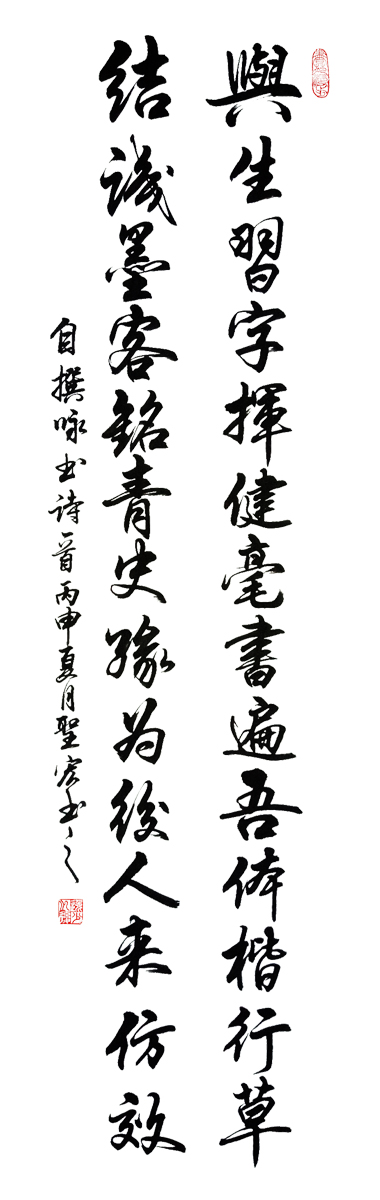 與生習字揮健毫書遍吾体楷行草
結識墨客銘青史緣为後人来仿效
自撰咏书诗一首丙申夏月聖宏书之